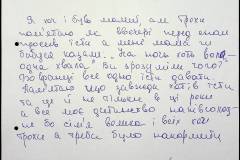 Я хоч і був малий, але трохи
пам'ятаю як ввечері перед сном
просив їсти а мені мама чи
бабуся казали. "На ночь хоть вола
одна хвала" Ви зрозуміли чого?
Бо вранці все одно їсти давати.
Пам'ятаю що завжди хотів їсти
та це й не тільки в ці роки
а все моє дитинство
бо сім'я велика і всіх
трохи а треба було накормити